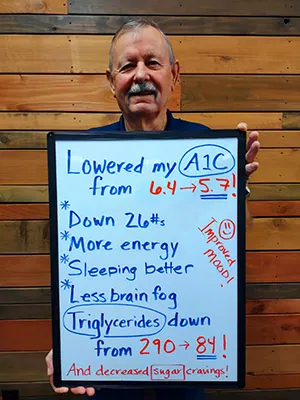 Lowered my A1C
from 6.4→5.7!
* Down 26#s
* More energy
Improved
mood!
* Sleeping better
* Less brain fog
Triglycerides down
from 290→84!
And decreased sugar cravings!